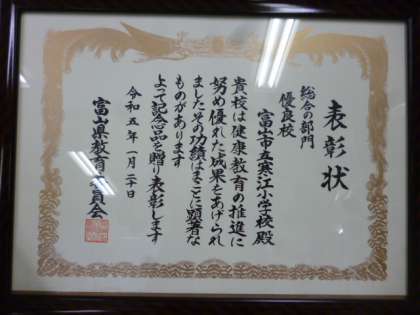 表彰状
総合の部門
優良校
富山市立寒江小学校殿
貴校は健康教育の推進に
努め優れた成果をあげられ
ましたその功績はまことに顕著な
ものがあります
よって記念品を贈り表彰します
令和五年一月二十日
富山県教育委員会